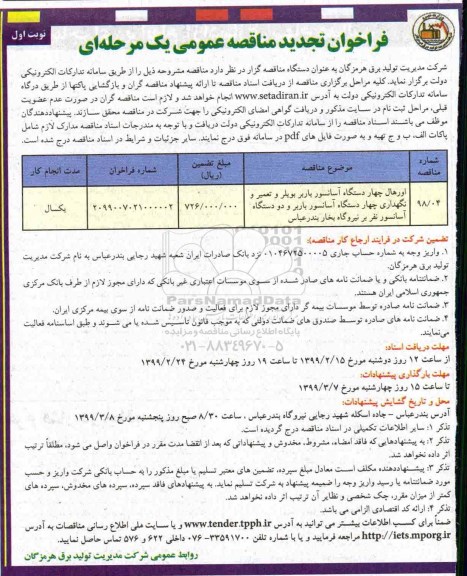 نوبت اول
فراخوان تجدید مناقصه عمومی یک مرحله‌ای
شرکت مدیریت تولید برق هرمزگان به عنوان دستگاه مناقصه گزار در نظر دارد مناقصه مشروحه ذیل را از طریق سامانه تدارکات الکترونیکی
دولت برگزار نماید. کلیه مراحل برگزاری مناقصه از دریافت اسناد مناقصه تا ارائه پیشنهاد مناقصه گران و بازگشایی پاکتها از طریق درگاه
سامانه تدارکات الکترونیکی دولت به آدرس www.setadiran.ir انجام خواهد شد و لازم است مناقصه گران در صورت عدم عضویت
قبلی، مراحل ثبت نام در سایت مذکور و دریافت گواهی امضای الکترونیکی را جهت شرکت در مناقصه محقق سازند. پیشنهاددهندگان
موظف می باشند اسناد مناقصه را از سامانه تدارکات الکترونیکی دولت دریافت و با توجه به مندرجات اسناد مناقصه مدارک لازم شامل
پاکات الف، ب و ج تهیه و به صورت فایل های pdf در سامانه فوق درج نمایند. سایر جزئیات و شرایط در اسناد مناقصه درج شده است.
شماره مناقصه	موضوع مناقصه	مبلغ تضمین (ریال)	شماره فراخوان	مدت انجام کار
۹۸/۰۴	اورهال چهار دستگاه آسانسور باربر بویلر و تعمیر و نگهداری چهار دستگاه آسانسور باربر و دو دستگاه آسانسور نفر بر نیروگاه بخار بندرعباس	۷۲۶/۰۰۰/۰۰۰	۲۰۹۹۰۰۷۰۲۱۰۰۰۰۰۲	یکسال
تضمین شرکت در فرایند ارجاع کار مناقصه):
۱. واریز وجه به شماره حساب جاری ۰۱۰۴۶۷۲۵۰۰۰۰۵ نزد بانک صادرات ایران شعبه شهید رجایی بندرعباس به نام شرکت مدیریت
تولید برق هرمزگان.
۲. ضمانتنامه بانکی و یا ضمانت نامه های صادر شده از سوی موسسات اعتباری غیر بانکی که دارای مجوز لازم از طرف بانک مرکزی
جمهوری اسلامی ایران هستند.
۳. ضمانت نامه صادره توسط موسسات بیمه گر دارای مجوز لازم برای فعالیت و صدور ضمانت نامه از سوی بیمه مرکزی ایران.
۴. ضمانت نامه های صادره توسط صندوق های ضمانت دولتی که به موجب قانون تأسیس شده یا می شوند و طبق اساسنامه فعالیت
می‌نمایند.
مهلت دریافت اسناد:
از ساعت ۱۲ روز دوشنبه مورخ ۱۳۹۹/۲/۱۵ تا ساعت ۱۹ روز چهارشنبه مورخ ۱۳۹۹/۲/۲۴
مهلت بارگذاری پیشنهادات:
تا ساعت ۱۵ روز چهارشنبه مورخ ۱۳۹۹/۳/۷
محل و تاریخ گشایش پیشنهادات:
آدرس بندرعباس – جاده اسکله شهید رجایی نیروگاه بندرعباس ، ساعت ۸/۳۰ صبح روز پنجشنبه مورخ ۱۳۹۹/۳/۸
تذکر ۱: سایر اطلاعات تکمیلی در اسناد مناقصه درج گردیده است.
تذکر ۲: به پیشنهادهایی که فاقد امضاء، مشروط، مخدوش و پیشنهاداتی که بعد از انقضا مدت مقرر در فراخوان واصل می شود، مطلقاً ترتیب
اثر داده نخواهد شد.
تذکر ۳: پیشنهاددهنده مکلف است معادل مبلغ سپرده، تضمین های معتبر تسلیم یا مبلغ مذکور را به حساب بانکی شرکت واریز و حسب
مورد ضمانتنامه یا رسید واریز وجه را ضمیمه پیشنهاد به شرکت تسلیم نماید. به پیشنهادهای فاقد سپرده، سپرده های مخدوش، سپرده های
کمتر از میزان مقرر، چک شخصی و نظایر آن ترتیب اثر داده نخواهد شد.
تذکر ۴: ارائه کد اقتصادی الزامی می باشد.
ضمناً برای کسب اطلاعات بیشتر می توانید به آدرس www.tender.tpph.ir و یا سایت ملی اطلاع رسانی مناقصات به آدرس
http://iets.mporg.ir مراجعه فرمایید و یا با شماره تلفن ۳۳۵۹۱۷۰۰-۰۷۶ داخلی ۶۲۲ و ۵۷۶ تماس حاصل نمایید.
روابط عمومی شرکت مدیریت تولید برق هرمزگان
ParsNamadData
پایگاه اطلاع رسانی مناقصه و مزایده
۰۲۱-۸۸۳۴۹۶۷۰-۵